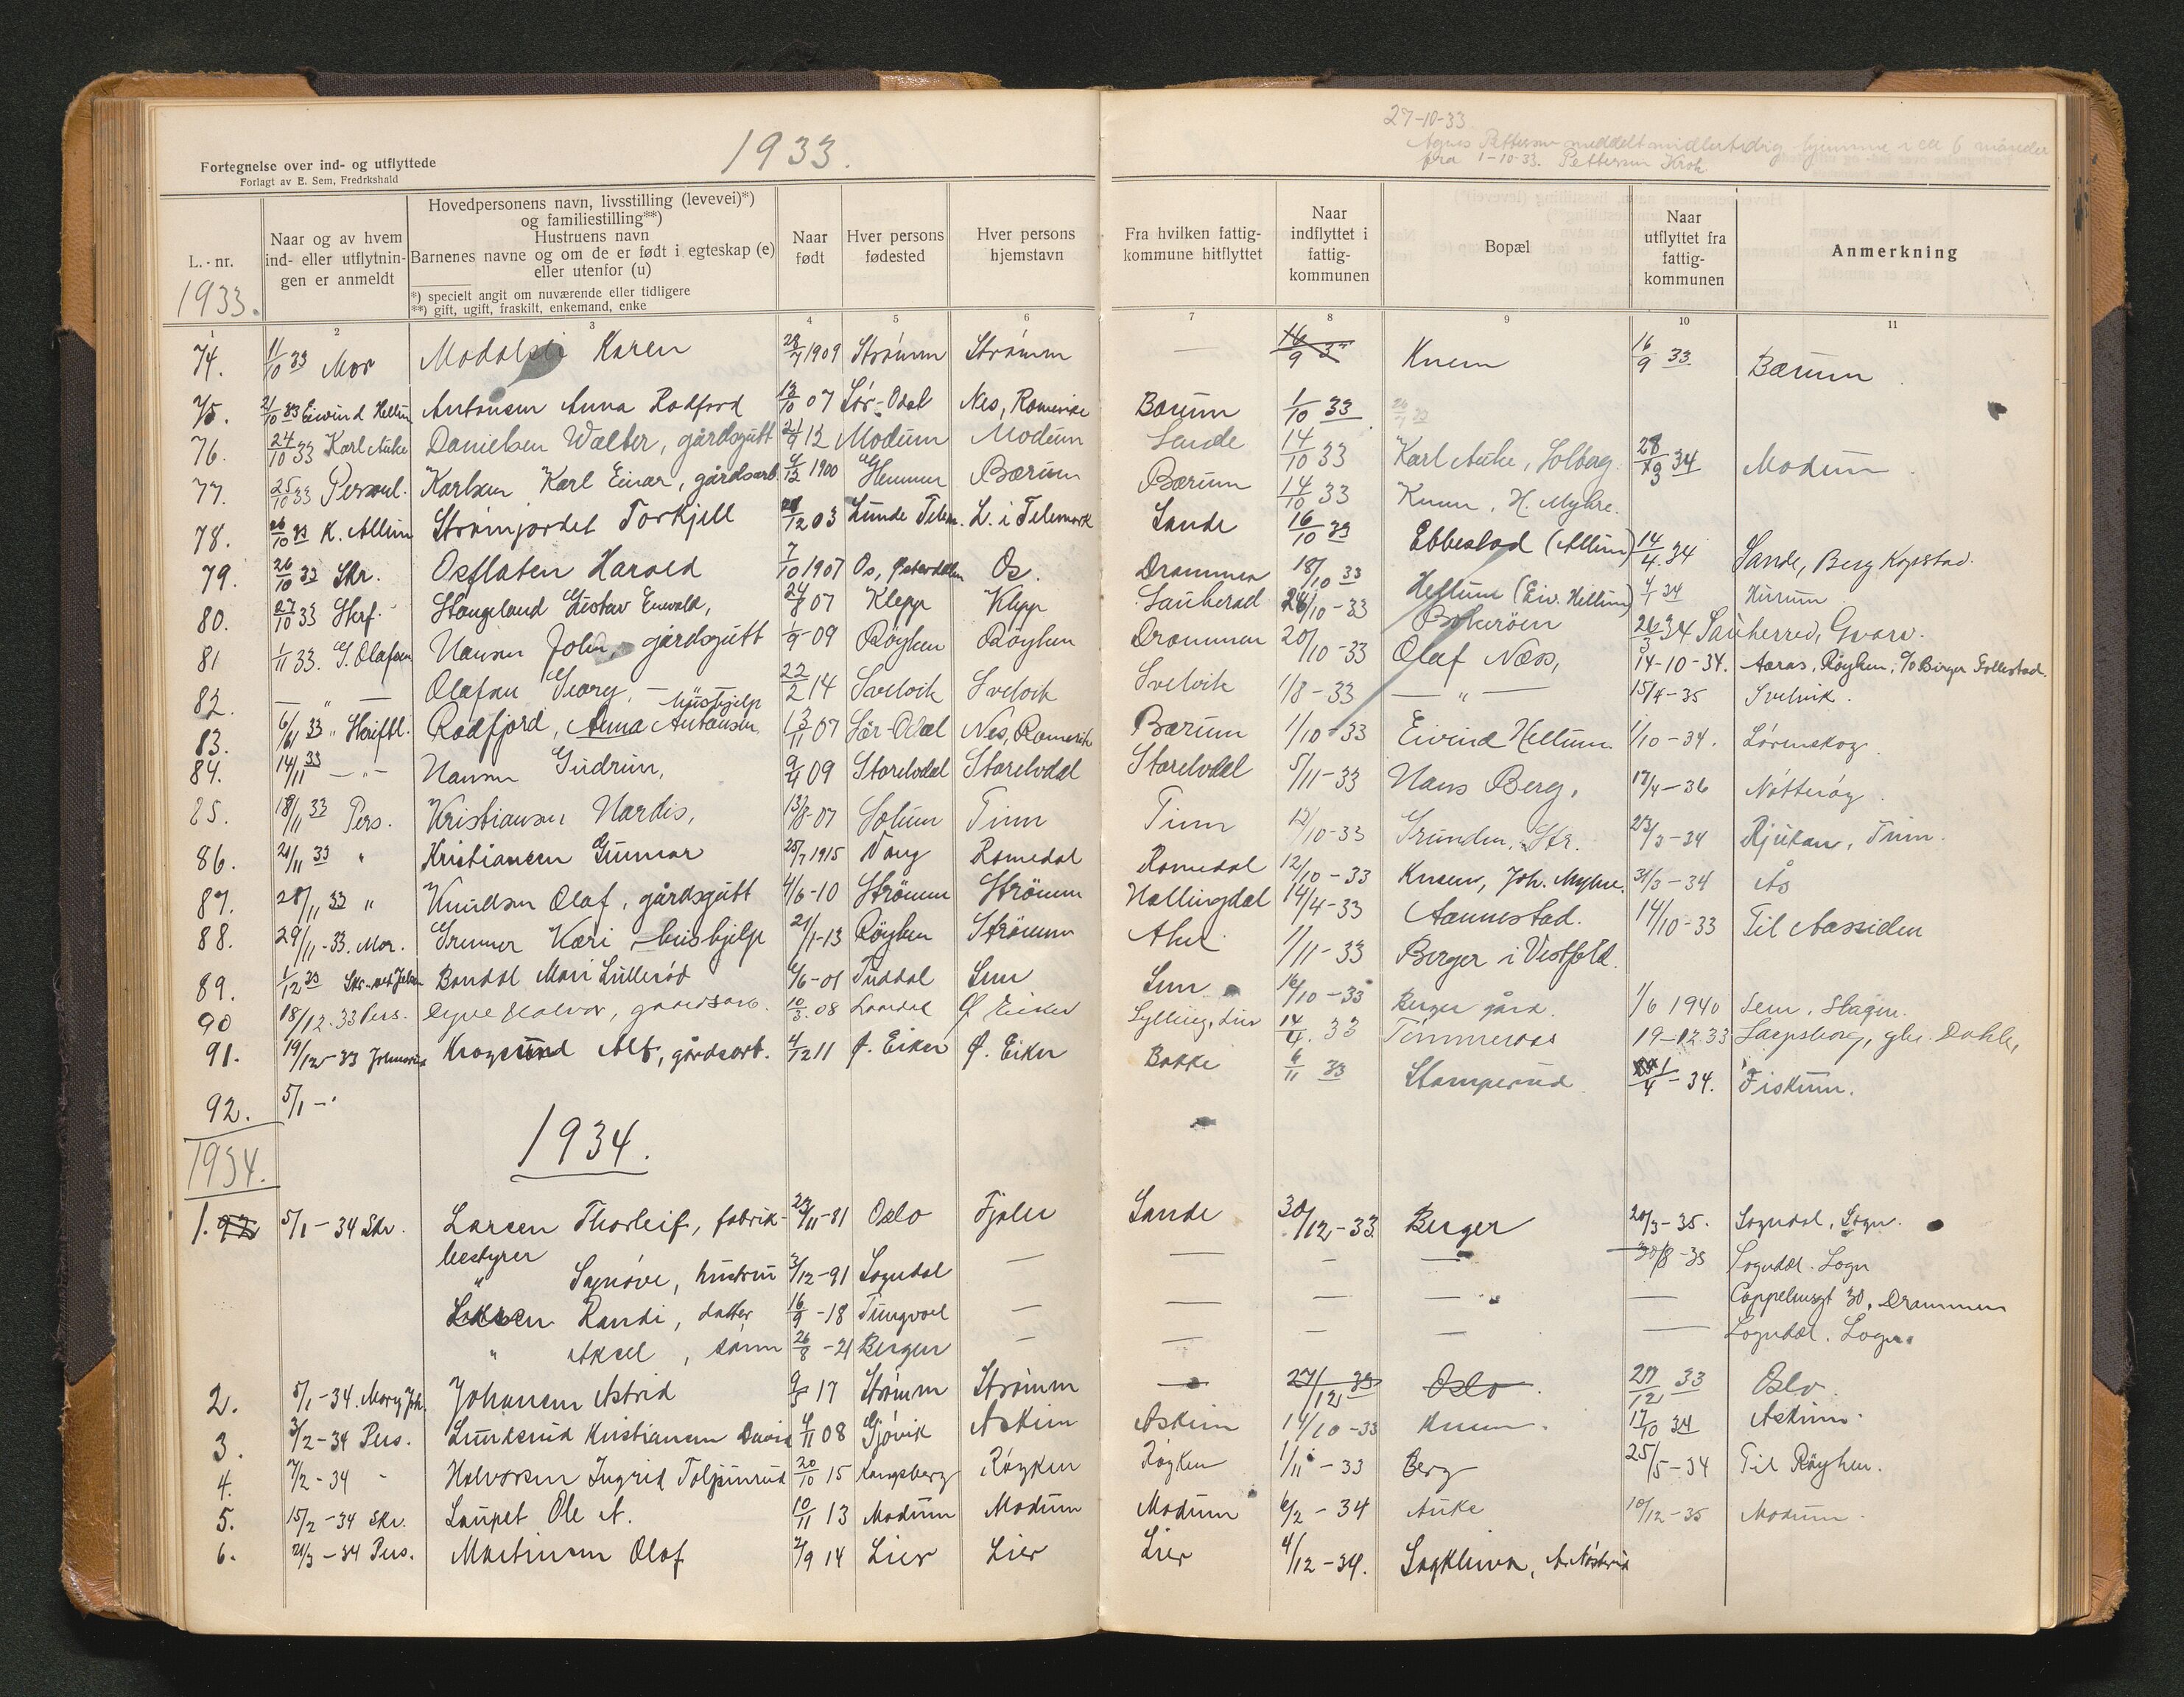 1933.
27-10-33
Agnes Pettersen meddelt midlertidig hjemme i ca 6 måneder
fra 1-10-33. Pettersen Krok.
Fortegnelse over ind- og utflyttede
Forlagt av E. Sem, Fredrkshald
L.-nr.
1933.
Naar og av hvem ind- eller utflytnin- gen er anmeldt
Hovedpersonens navn, livsstilling (levevei)*) og familiestilling**)
Hustruens navn
Barnenes navne og om de er født i egteskap (e) eller utenfor (u)
*) specielt angit om nuværende eller tidligere
**) gift, ugift, fraskilt, enkemand, enke
Naar født
Hver persons fødested
Hver persons hjemstavn
Fra hvilken fattig- kommune hitflyttet
Naar indflyttet i fattig- kommunen
Bopæl
Naar utflyttet fra fattig- kommunen
Anmerkning
1 2 3 4 5 6 7 8 9 10 11
74. 11/10 33 Mor Karen 28/7 1909 Strömm Strömm — 16/9 33 Knem 16/9 33 Bærum
75. 21/10 33 Eivind Hellum Antonsen Anna Rodfjord 13/10 07 Sör-Odal Nes, Romerike Bærum 1/10 33
76. 24/10 33 Karl Auke Danielsen Walter, gårdsgutt 21/9 12 Modum Modum Sande 14/10 33 Karl Auke, Solberg 28/3 34 Modum
77. 25/10 33 Personl. Karlsen Karl Einar, gårdsarb. 4/12 1900 Bærum Bærum 14/10 33 Knem, H. Myhre.
78. 26/10 33 K. Allum Strömjordet Torkjell 12 03 Lunde Telem. L. i Telemark Sande 16/10 33 Ebbestad (Allum) 14/4 34 Sande, Berg Kopstad.
79. 26/10 33 Skr. Osflaten Harald 7/10 1907 Os, Österdalen Os. Drammen 18/10 33 Hellum (Eiv. Hellum) 4/1 34 Hurum
80. 27/10 33 Stangeland Gustav Enevald, 24/8 07 Klepp Klepp Sauherad 24/10-33 26/3 34 Sauherred, Gvarv.
81 1/11 33. G. Olafsen Hansen John, gårdsgutt 1/9-09 Röyken Röyken Drammen 20/10-33 Olaf Næss, 14-10-34. Aaras, Röyken, c/o Birger Follestad.
82. — " — Olafsen Georg, — 22/2 14 Svelvik Svelvik Svelvik 1/8-33 — " — 15/4-35 Svelvik.
83. 6/11 33 " Rodfjord, Anna Antonsen, hushjelp 13/11 07 Sör-Odal Nes, Romerik Bærum 1/10-33 Eivind Hellum 1/10-34. Lörenskog.
84. 14/11 33 — " — Hansen Gudrun, 9/4 09 Storelvdal Storelvdal Storelvdal 5/11-33 Hans Berg, 17/4-36 Nötteröy
85. 18/11 33 Pers. Kristiansen Nardis, 13/8-07 Solum Tinn Tinn 12/10-33 Grunden, Str. 23/3-34 Rjukan, Tinn.
86. 21/11 33 " Kristiansen Gunnar 25/7 1915 Vang Romedal Romedal 12/10-33 Knem, Joh. Myhre. 31/3-34 Ås
87. 28/11 33 " Knudsen Olaf, gårdsgutt 4/6-10 Strömm Strömm Hallingdal 14/4-33 Aannestad. 14/10-33 Til Aassiden
88. 29/11-33. Mor. Grunner Kari hushjelp 21/1-13 Röyken Strömm 1/11-33 Berger i Vestfold.
89. 1/12 33 Bondal Mari Lullerød 4/6-01 Tuddal Sem Sem 16/10-33 Berger gård. 1/6 1940 Sem. Slagen.
90 18/12.33 Pers. Halvor, gaardsarb. 10/3. 08 Ö Eiker Sylling, Lier 14/4. 33 Tömmeraas 19-12 33 Sarpsborg, Dahle,
91. 19/12-33 Krogsund Alf, gårdsarb. 4/12 11 Ö. Eiker Ö. Eiker Bakke 6/11 33 Stamperud 1/4-34. Fiskum.
92. 5/1 -
1934.
1934.
1. 92 5/1-34 Skr. Larsen Thorleif, fabrik- 23/11-81 Oslo Fjaler Sande 30/12-33. Berger 20/3-35. Sogndal, Sogn.
bestyrer
" Synöve, hustru 3/12-91 Sogndal — — — — 30/8-35 Sogndal. Sogn
Larsen Randi, datter 16/9-18 Tingvoll — — — — — Cappelensgt 30, Drammen
" Aksel, sönn 26/8-21 Bergen — — — — — Sogndal. Sogn.
2. 5/1-34. Mary Joh. Johansen Astrid 9/5 17 Strömm Strömm — 27/12 33 Oslo. 27/12 33 Oslo.
3. 3/2-34 Pers. Lundsrud Kristiansen David 4/11 08 Gjövik Askim Askim 14/10-33 Knem. 17/10 34 Askim.
4. 7/2-34 - Halvorsen Ingrid Toljunrud 20/10 15 Kongsberg Röyken Röyken 1/11-33 Berg 25/5-34 Til Röyken.
5. 15/2-34 Skr. Laupet Ole A. 10/11 13 Modum Modum Modum 6/2-34 Auke 10/12-35 Modum.
6. 21/3-34 Pers. Martinsen Olaf 2/9 14 Lier Lier Lier 4/12-34. Sagkleiva,